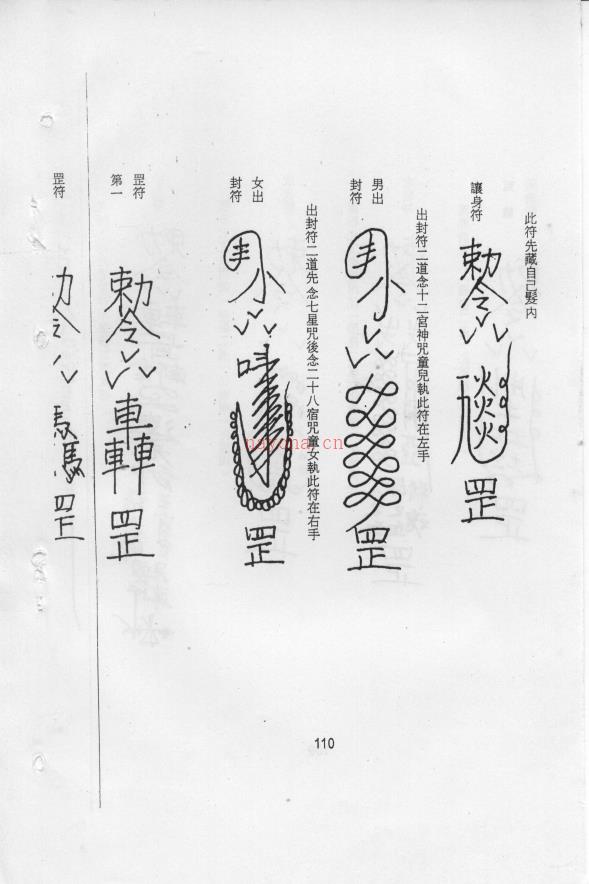 此符先藏自己髮內
護身符
勅令
罡
出封符二道念十二宮神咒童兒執此符在左手
男出
封符
罡
出封符二道先念七星咒後念二十八宿咒童女執此符在右手
女出
封符
罡
罡符
第一
勅令
車轟
罡
罡符
罡
nayona.cn
110